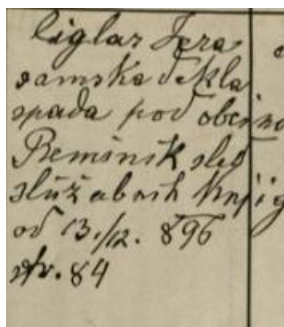 Ciglar Jera
samska dekla
spada pod občino
Remšnik sled
služabnih knjig
od 13./12. 896
str. 84